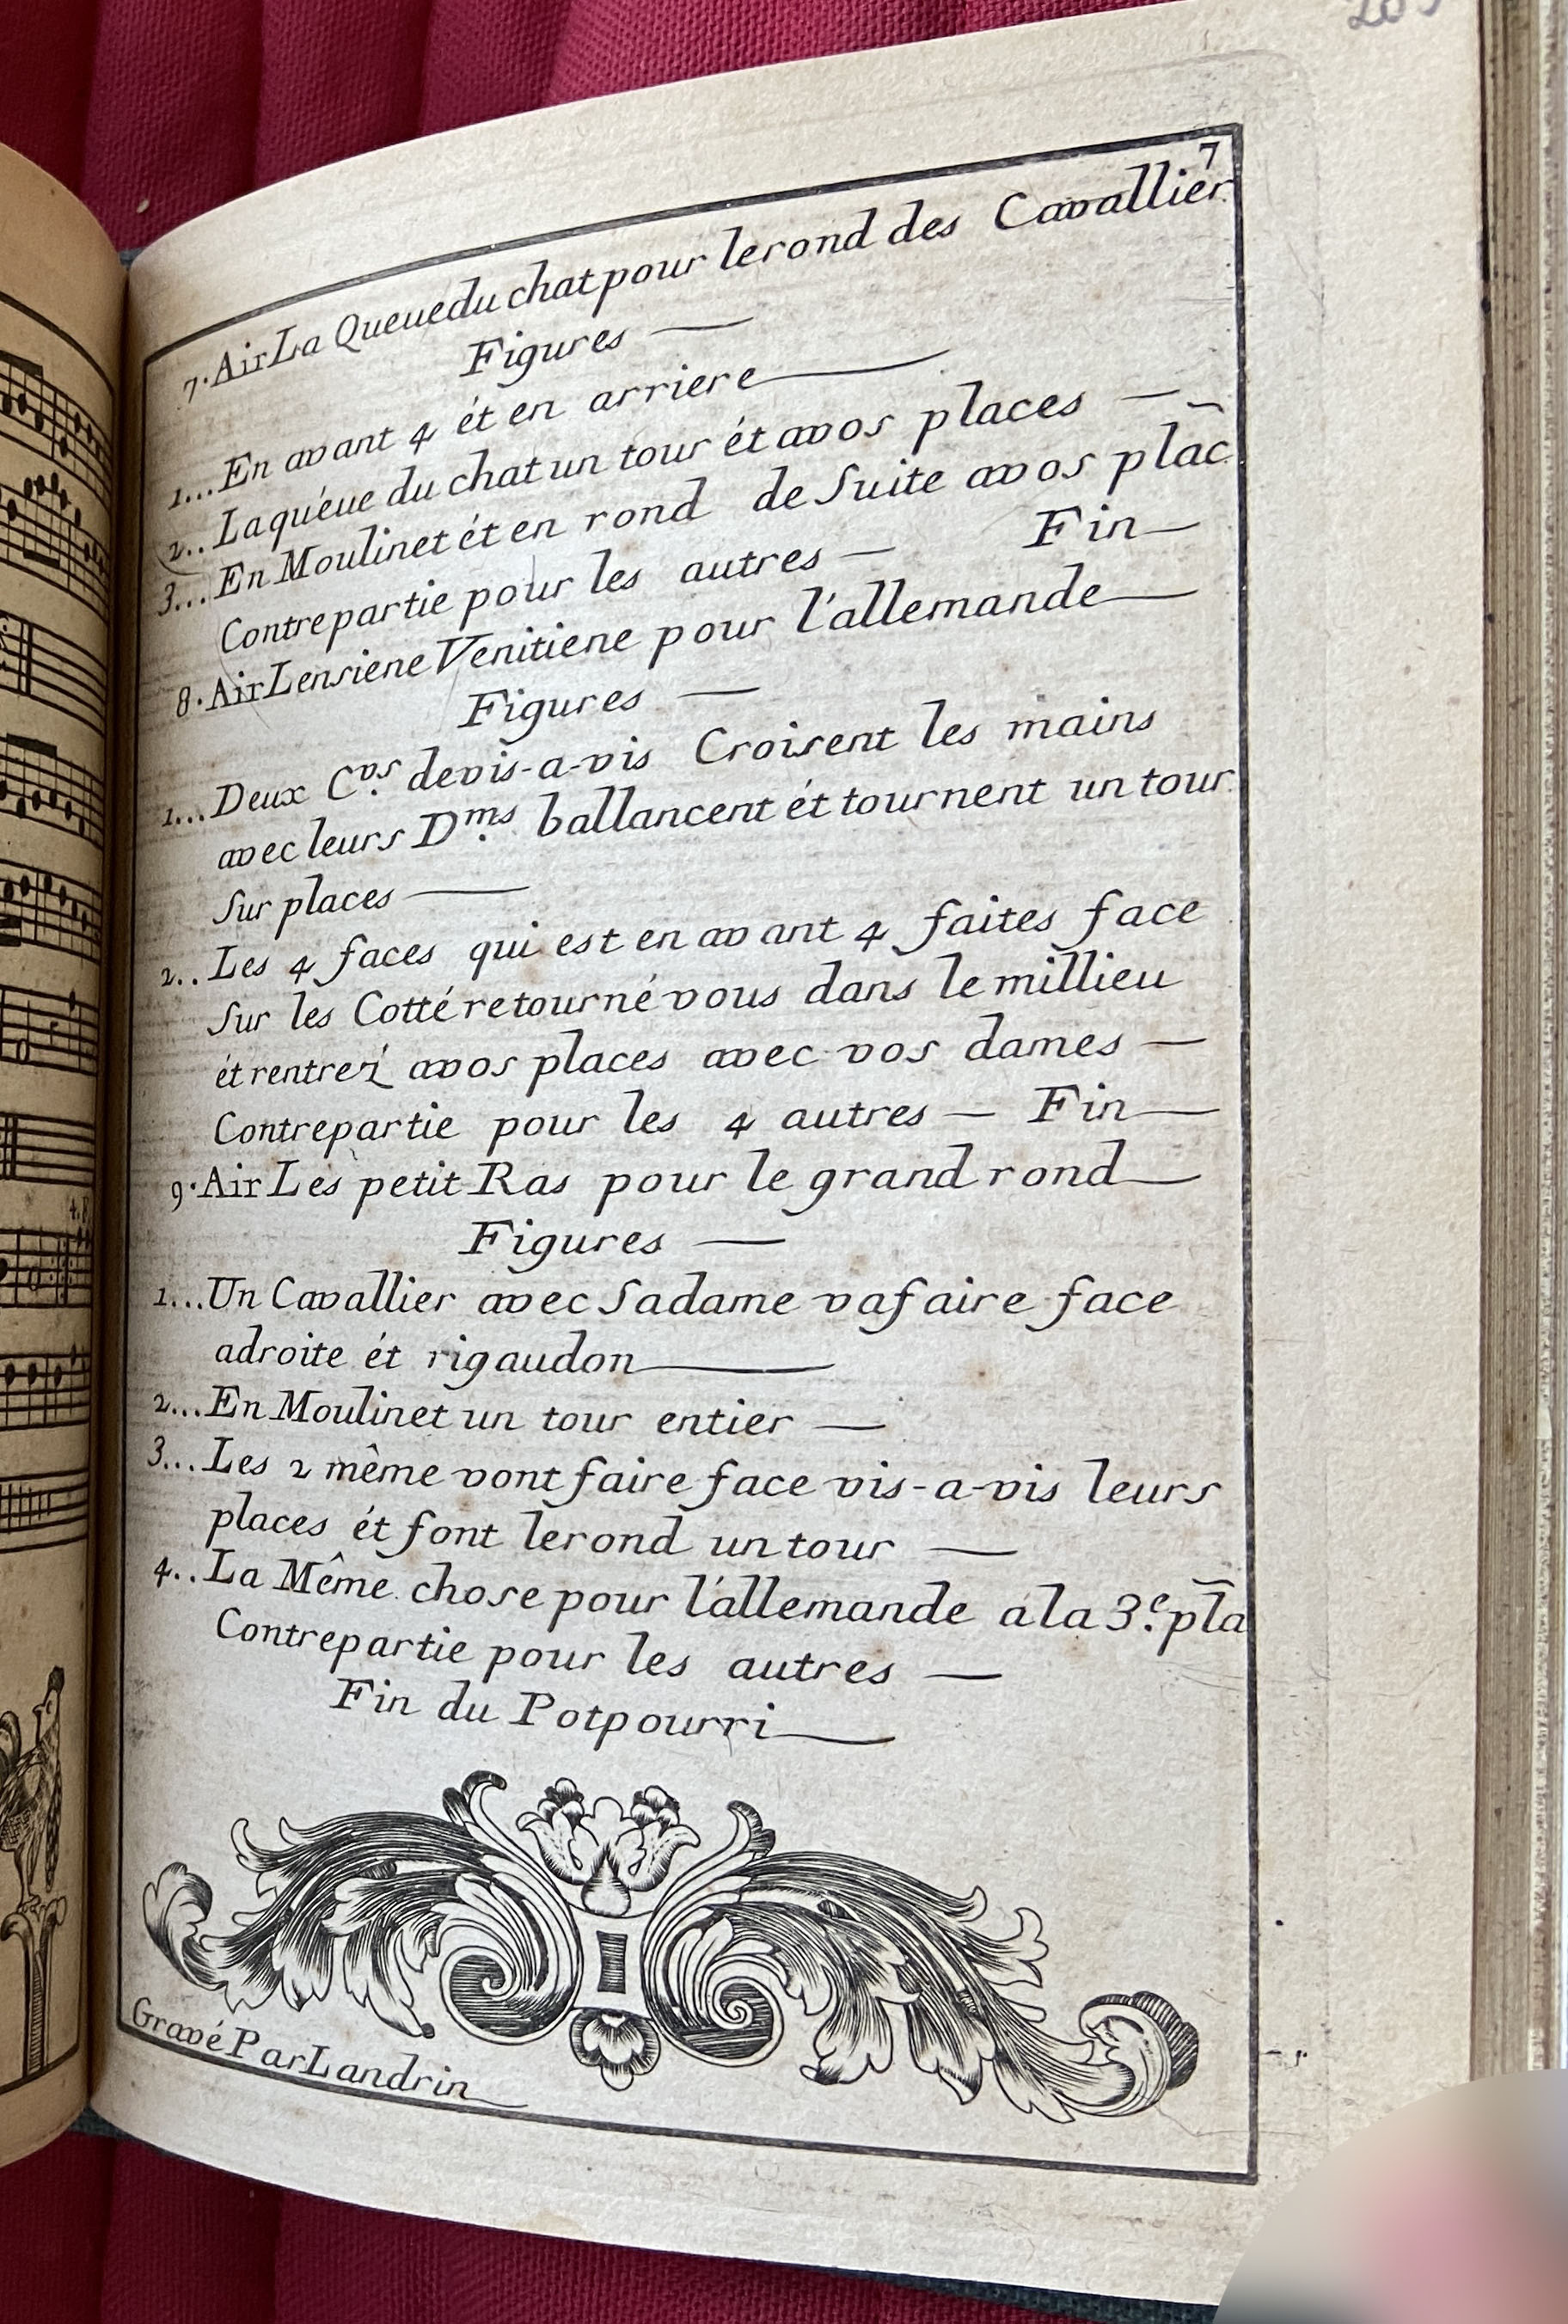 7
7. Air La Queue du chat pour le rond des Cavallier.
Figures —
1... En avant 4 ét en arriere —
2.. La quéue du chat un tour ét a vos places —
3... En Moulinet ét en rond de Suite a vos plac̄
Contrepartie pour les autres — Fin —
8. Air Lensiene Venitiene pour l'allemande —
Figures —
1... Deux C.vrs de vis-a-vis Croisent les mains
avec leurs D.ms ballancent ét tournent un tour
Sur places —
2.. Les 4 faces qui est en avant 4 faites face
Sur les Cotté retourné vous dans le millieu
ét rentrez a vos places avec vos dames —
Contrepartie pour les 4 autres — Fin —
9. Air Les petit Ras pour le grand rond —
Figures —
1... Un Cavallier avec Sa dame va faire face
a droite ét rigaudon —
2... En Moulinet un tour entier —
3... Les 2 même vont faire face vis-a-vis leurs
places ét font le rond un tour —
4.. La Même chose pour l'allemande á la 3.e pla̅
Contrepartie pour les autres —
Fin du Potpourri —
Gravé Par Landrin